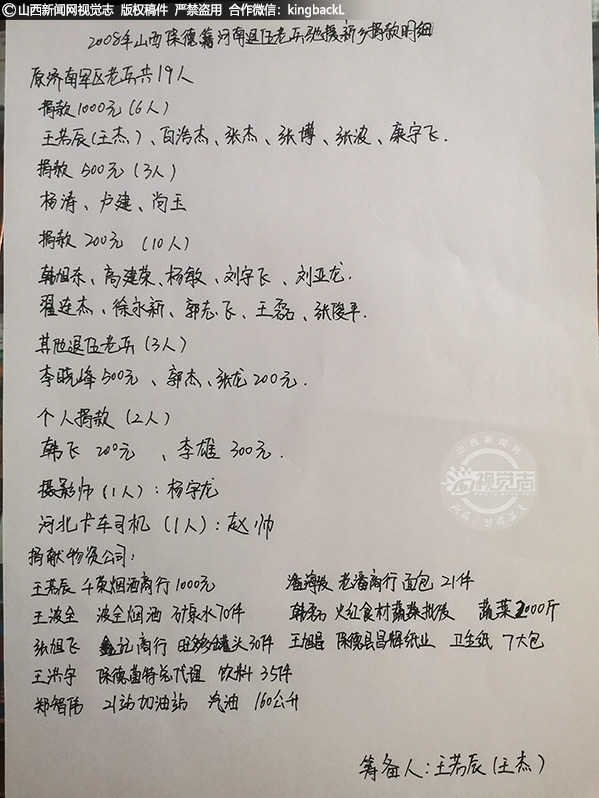 ©山西新闻网视觉志 版权稿件 严禁盗用 合作微信：kingbackL
2008年山西保德籍河南退伍老兵驰援新乡捐款明细
原济南军区老兵共19人
捐款1000元(6人)
王若辰(王杰)、白浩杰、张杰、张博、张波、康宇飞.
捐款500元(3人)
杨涛、卢建、尚玉
捐款200元(10人)
韩旭东、高建荣、杨敏、刘宇飞、刘亚龙.
翟连杰、徐永新、郭志飞、王磊、张俊平.
其他退伍老兵(3人)
李晓峰500元、郭杰、张龙200元.
个人捐款(2人)
韩飞200元、李雄300元.
摄影师(1人)：杨宇龙
河北卡车司机(1人)：赵帅
捐献物资公司：
王若辰 千荣烟酒商行1000元 潘海俊 老潘商行 面包21件
王波全 波全烟酒 矿泉水70件 韩 火红食材蔬菜批发 蔬菜2000斤
张旭飞 鑫记商行 旺 罐头30件 王旭昌 保德县昌辉纸业 卫生纸7大包
王洪宇 保德 特总代理 饮料35件
郑智伟 21站加油站 汽油160公升
筹备人：王若辰(王杰)
山西新闻网
视觉志